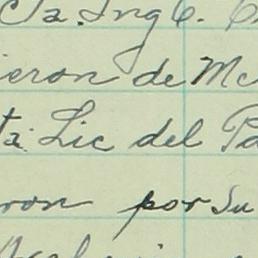 Ing C.
ieron de Mc
ta. Lic del Pa
ron por su